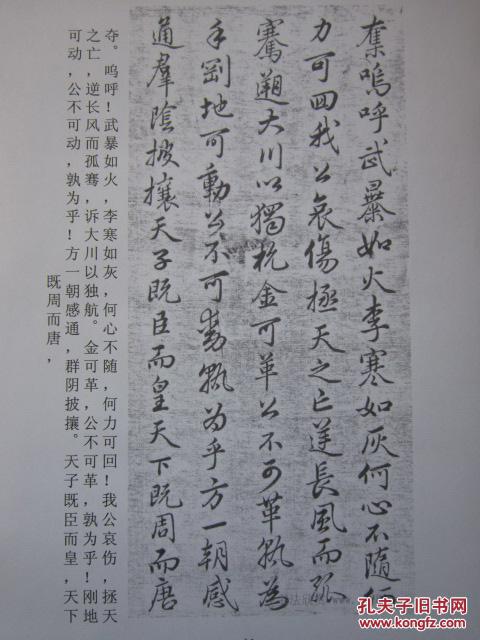 奪嗚呼武暴如火李寒如灰何心不隨何
力可回我公哀傷拯天之亡逆長風而孤
騫遡大川以獨航金可革公不可革孰為
乎剛地可動公不可動孰为乎方一朝感
通羣陰披攘天子既臣而皇天下既周而唐
夺。呜呼！武暴如火，李寒如灰，何心不随，何力可回！我公哀伤，拯天
之亡，逆长风而孤骞，诉大川以独航。金可革，公不可革，孰为乎！刚地
可动，公不可动，孰为乎！方一朝感通，群阴披攘。天子既臣而皇，天下
既周而唐，
孔夫子旧书网
www.kongfz.com